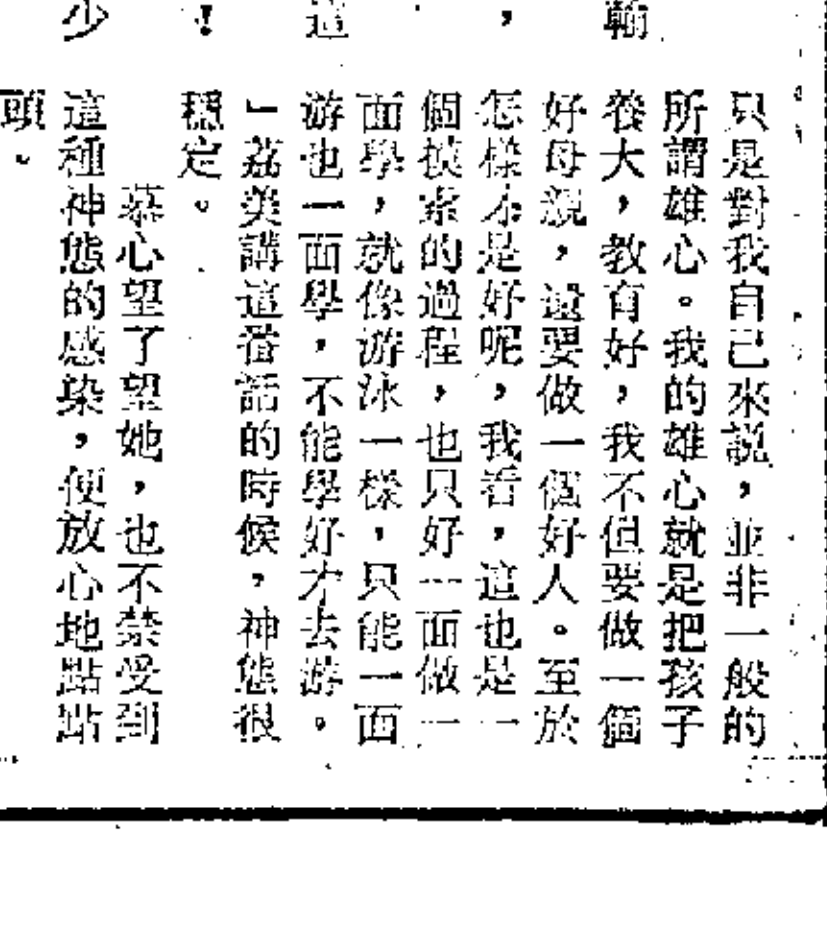 輪
，
這
！
少
只是對我自己來説，並非一般的
所謂雄心。我的雄心就是把孩子
養大，教育好，我不但要做一個
好母親，還要做一個好人。至於
怎樣才是好呢，我看，這也是一
個摸索的過程，也只好一面做一
面學，就像游泳一樣，只能一面
游也一面學，不能學好才去游。
」荔美講這番話的時候，神態很
穩定。
慕心望了望她，也不禁受到
這種神態的感染，便放心地點點
頭。